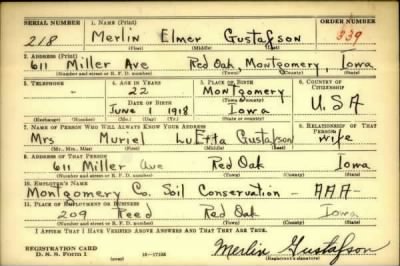 SERIAL NUMBER 1. NAME (Print) ORDER NUMBER
218 Merlin Elmer Gustafson 339
(First) (Middle) (Last)
2. ADDRESS (Print)
611 Miller Ave Red Oak, Montgomery, Iowa
(Number and street or R. F. D. number) (Town) (County) (State)
3. TELEPHONE 4. AGE IN YEARS 5. PLACE OF BIRTH 6. COUNTRY OF CITIZENSHIP
22 Montgomery
DATE OF BIRTH (Town or county) U.S.A
June 1 1918 Iowa
(Exchange) (Number) (Mo.) (Day) (Yr.) (State or country)
7. NAME OF PERSON WHO WILL ALWAYS KNOW YOUR ADDRESS 8. RELATIONSHIP OF THAT PERSON
Mrs Muriel LuEtta Gustafson wife
(Mr., Mrs., Miss) (First) (Middle) (Last)
9. ADDRESS OF THAT PERSON
611 Miller Ave Red Oak Iowa
(Number and street or R. F. D. number) (Town) (County) (State)
10. EMPLOYER'S NAME
Montgomery Co. Soil Conservation - AAA-
11. PLACE OF EMPLOYMENT OR BUSINESS
209 Reed Red Oak Iowa
(Number and street or R. F. D. number) (Town) (County) (State)
I AFFIRM THAT I HAVE VERIFIED ABOVE ANSWERS AND THAT THEY ARE TRUE.
REGISTRATION CARD
D. S. S. Form 1 (over) 16-17105 Merlin Gustafson
(Registrant's signature)